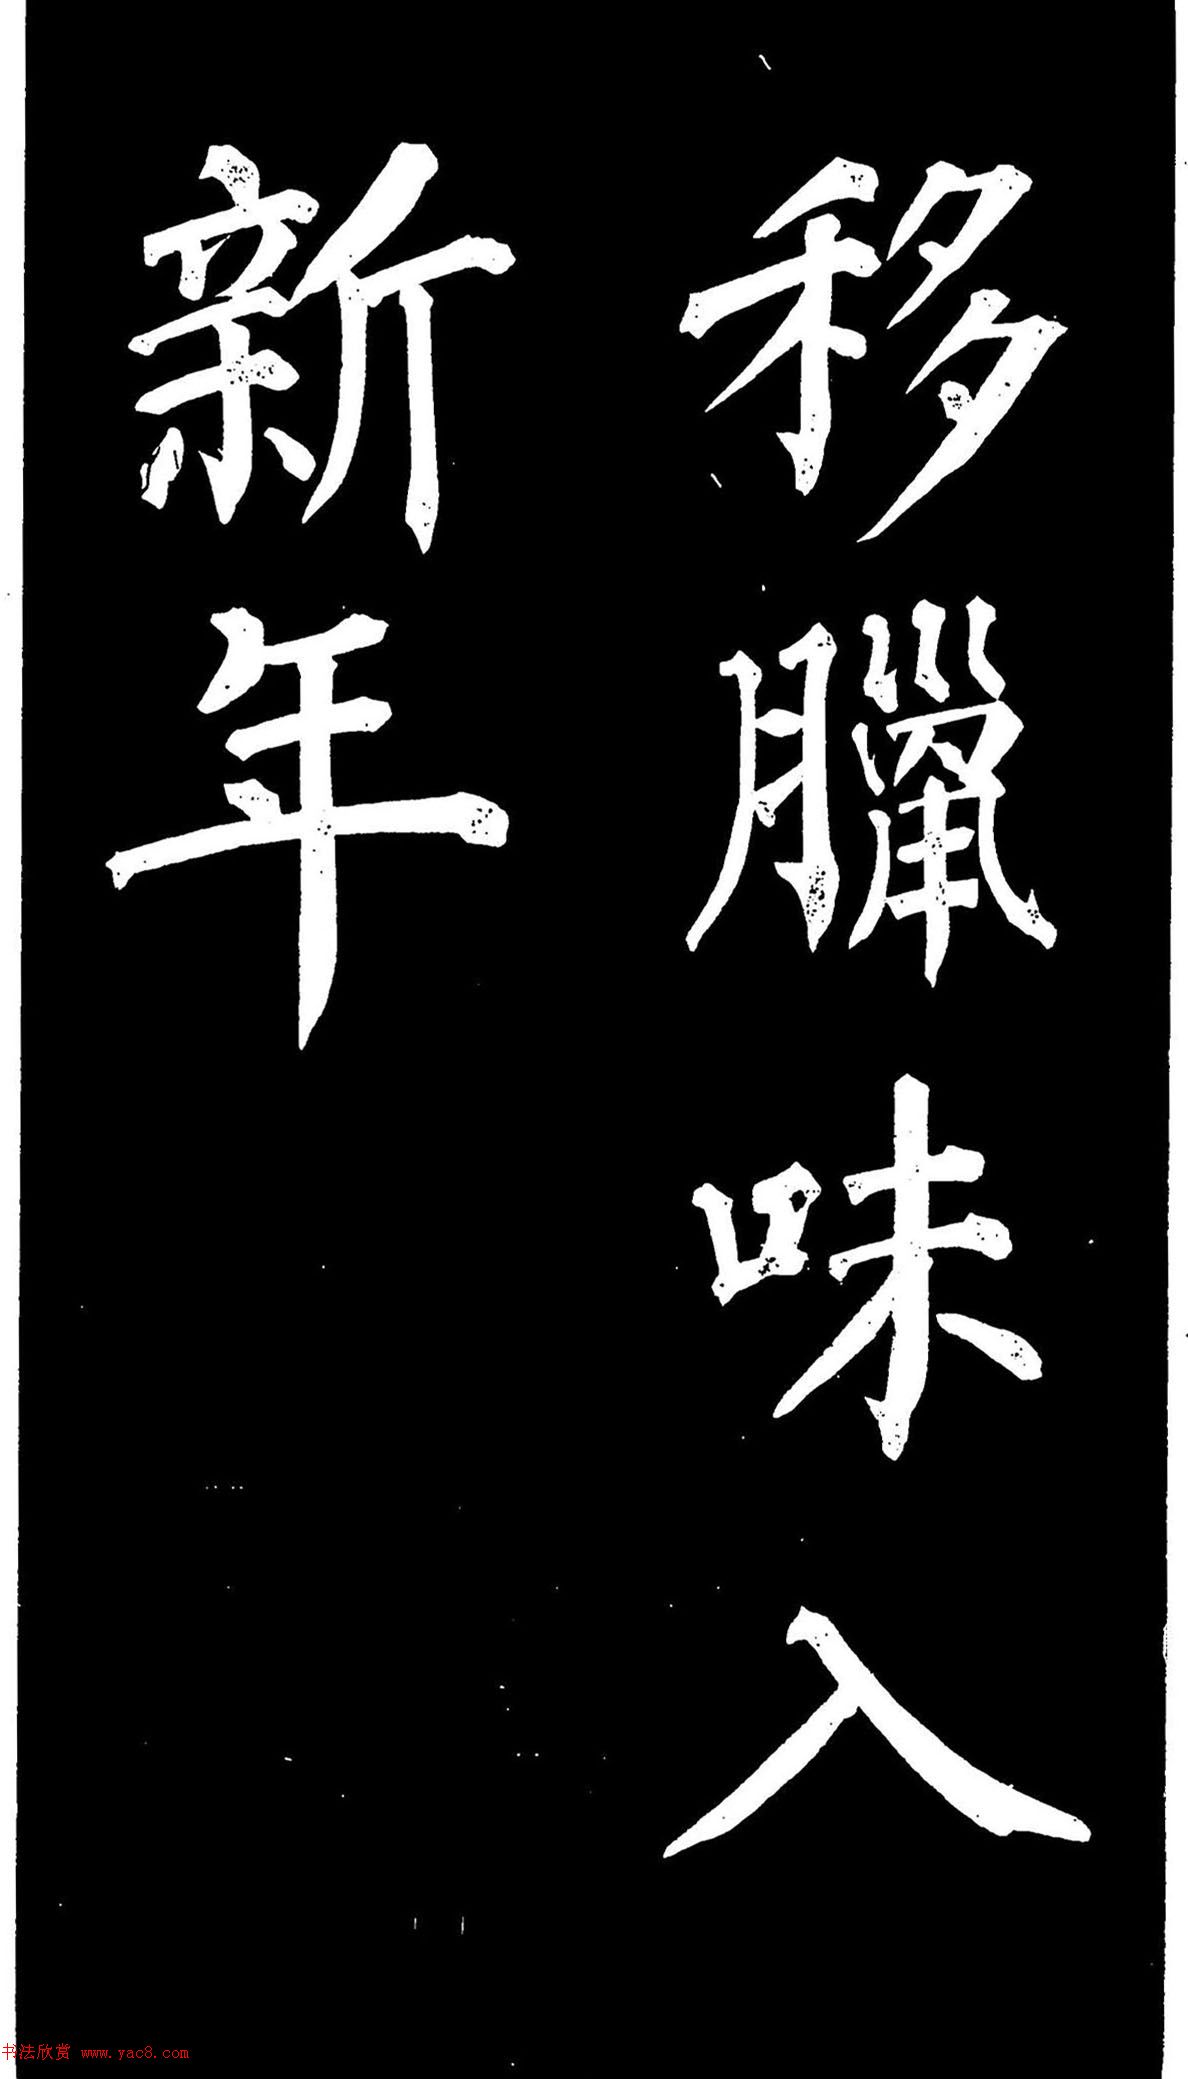 移臘味入
新年
书法欣赏 www.yac8.com